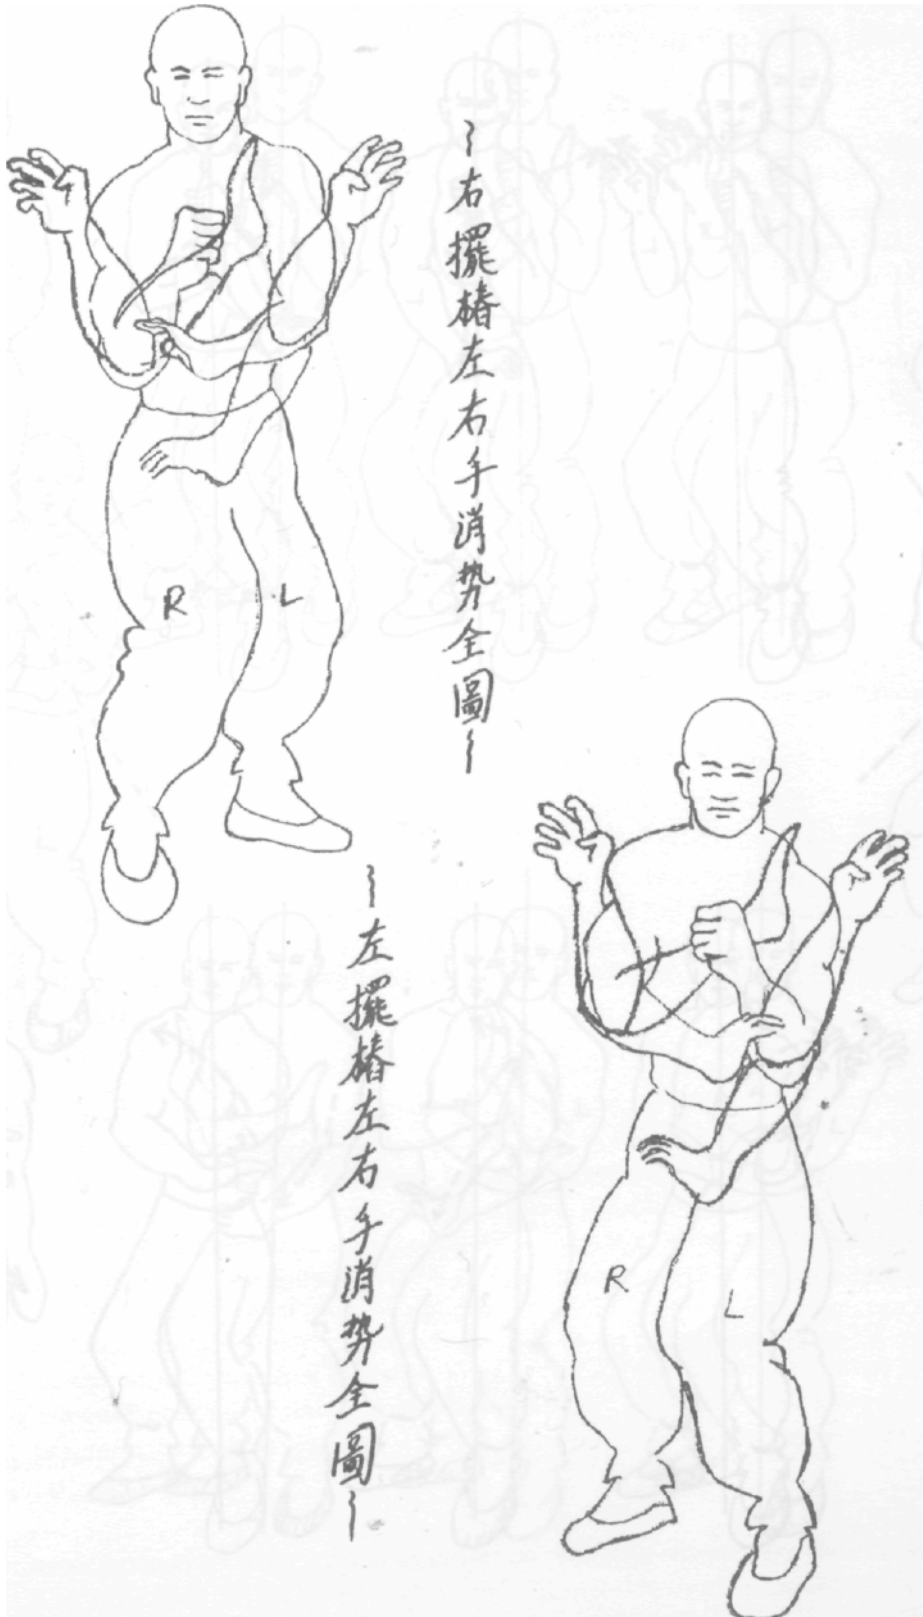 ~右擺樁左右手消势全圖~
R L
~左擺樁左右手消势全圖~
R
L